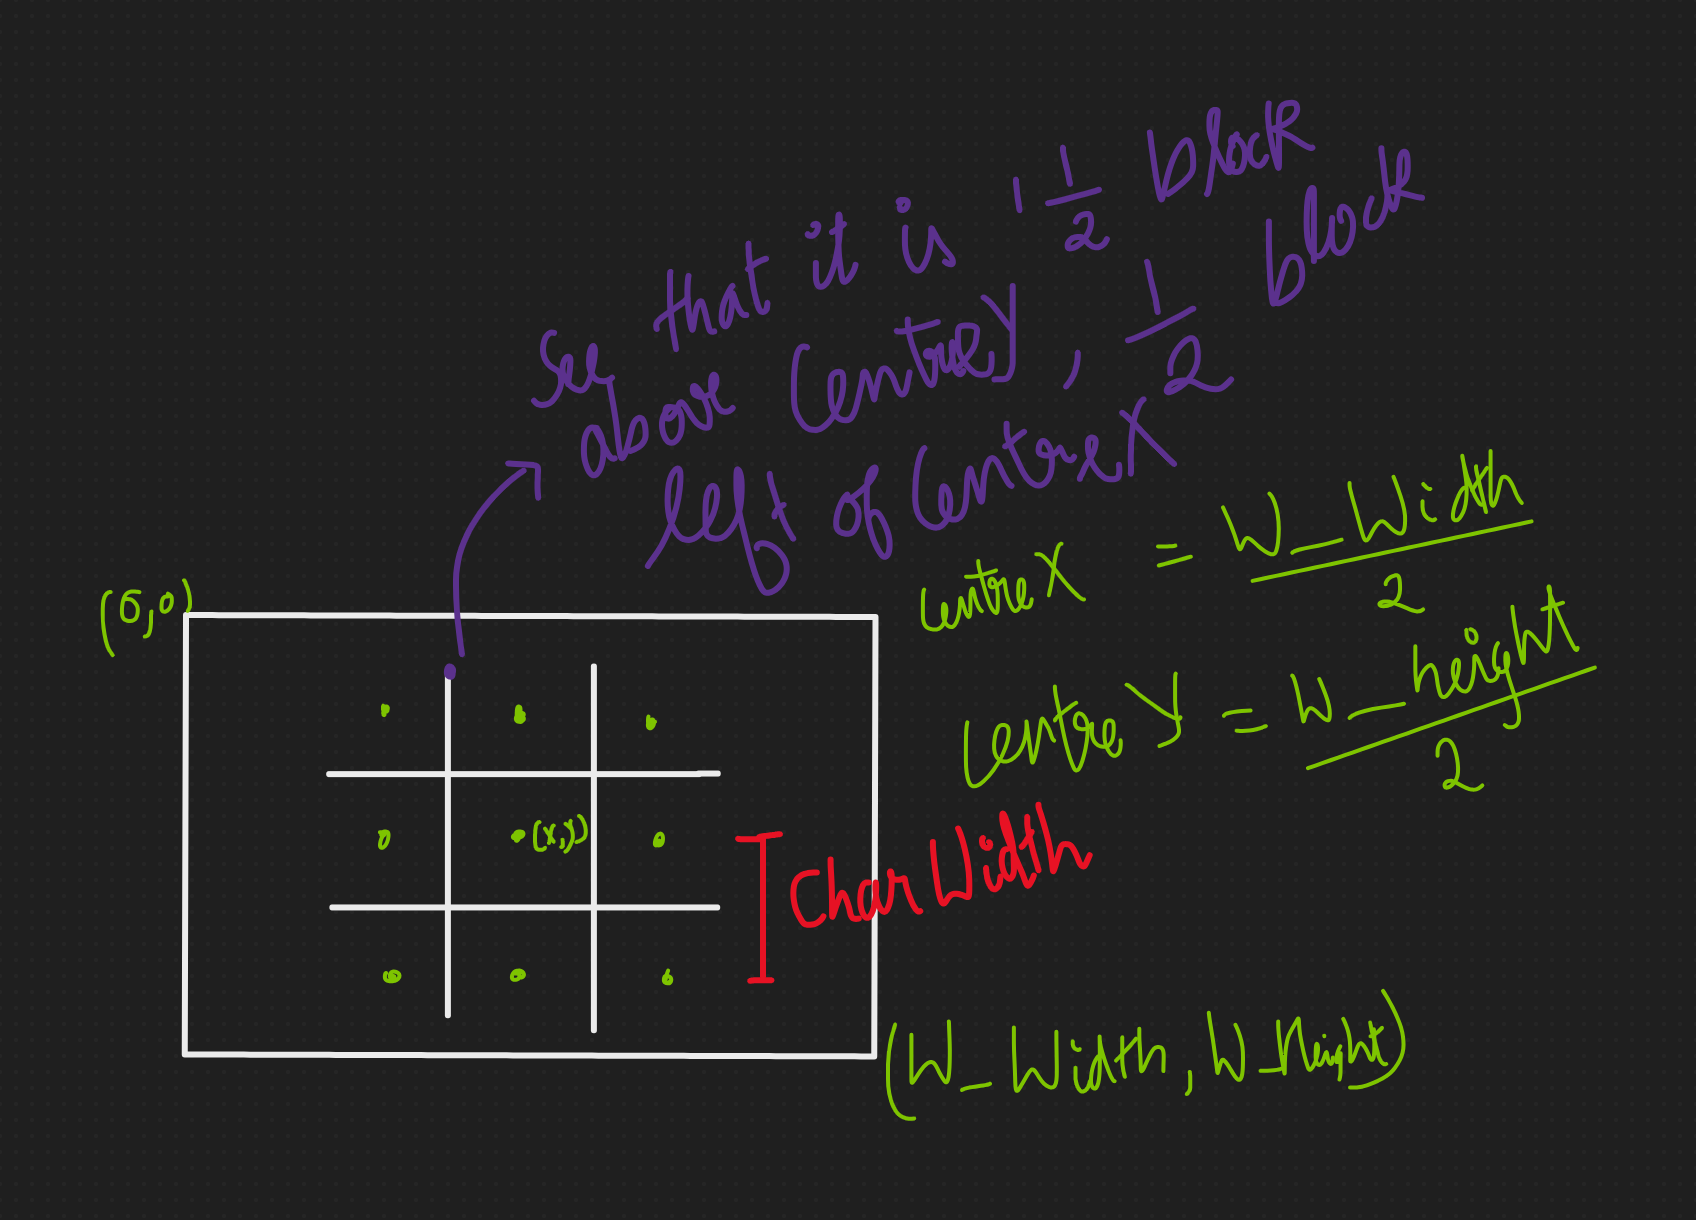 See that it is 1 1/2 block
above CentreY, 1/2 block
left of CentreX
CentreX = W_Width / 2
(0,0)
CentreY = W_height / 2
(x,y)
CharWidth
(W_Width, W_Height)